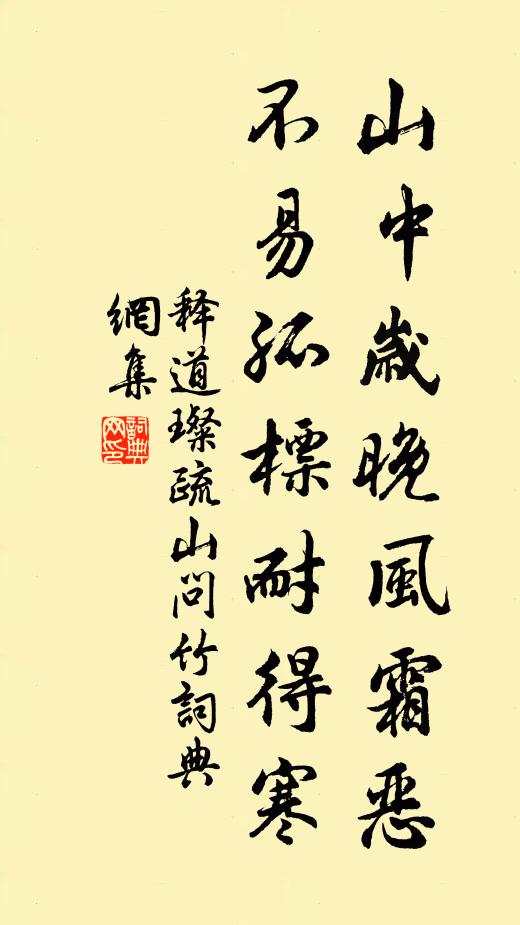 山中歲晚風霜惡
不易孤標耐得寒
释道璨疏山问竹詞典
網集
詞典
网印